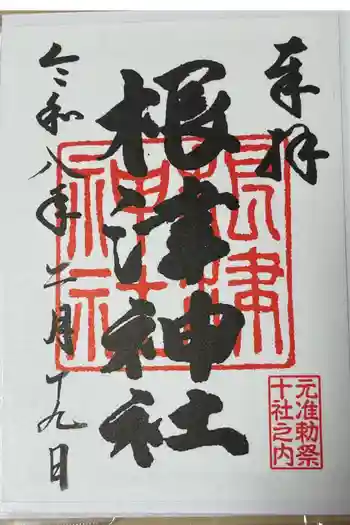 奉拝
根津神社
根津神社
元准勅祭
十社之内
令和八年二月十九日